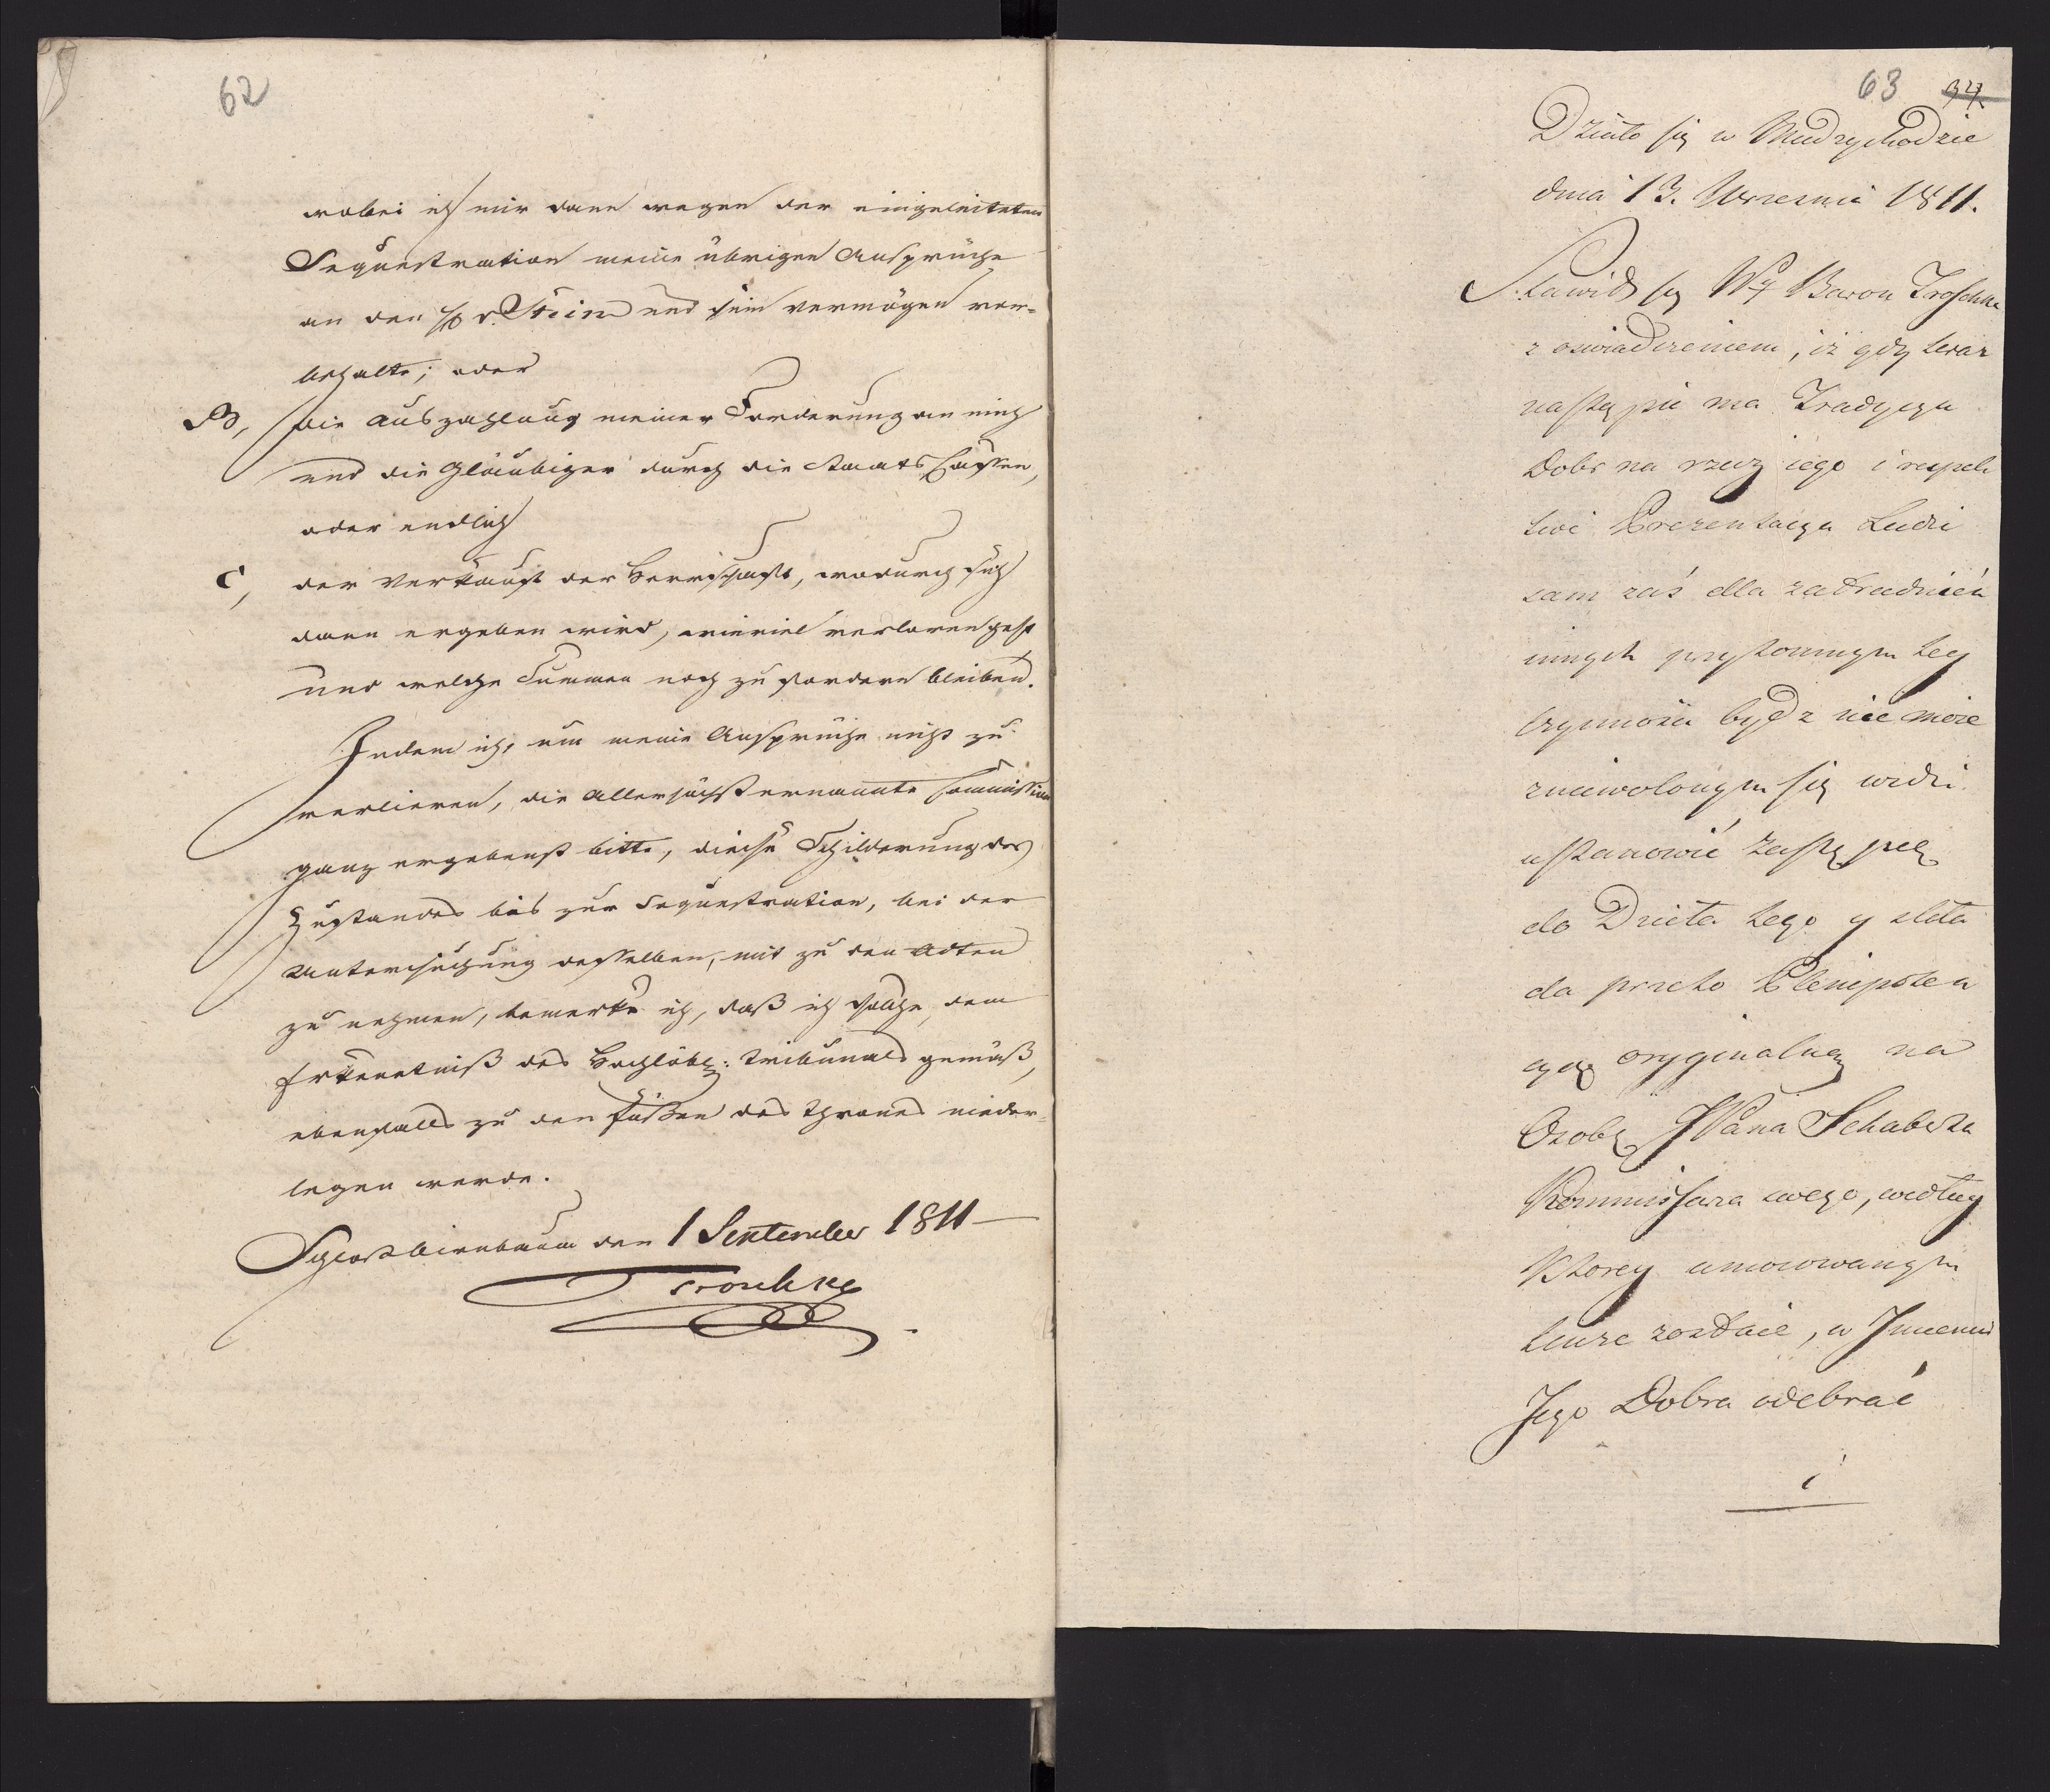 62
wobei ich mir dann wegen der eingeleiteten
Sequestration meine übrigen Ansprüche
an den p v. Stein und sein Vermögen vor-
behalte; oder
B, die Auszahlung meiner Forderung an mich
und die Gläubiger durch die Staats Cassen,
oder endlich
C, der Verkauf der Herrschaft, wodurch sich
dann ergeben wird, wieviel verloren geht
und welche Summen noch zu fordern bleiben.
Indem ich, um meine Ansprüche nicht zu
verlieren, die Allerhöchst ernannte Commission
ganz ergebenst bitte, diese Schilderung des
Zustandes bis zur Sequestration, bei der
Untersuchung desselben, mit zu den Acten
zu nehmen, bemerke ich, daß ich solche dem
Erkenntniß des Hochlöbl: Tribunals gemäß,
ebenfalls zu den Füßen des Thrones nieder-
legen werde.
Schloß Birnbaum den 1 September 1811
Troschke
63 34
Działo się w Miedzychodzie
dnia 13. Wrzesnia 1811.
Stawił się WJ Baron Troschke
z oswiadczeniem, iż gdy teraz
nastąpić ma Tradycya
Dobr na rzecz iego i respek
tive Prezentacya Ludzi
sam zaś dla zatrudnień
innych przytomnym tey
czynności bydz nie może
zniewolonym się widzi
ustanowić Zastępcę
do Dzieła tego y składa
da przeto Plenipoten
cyą oryginalną na
Osobę JPana Schaberta
Kommissarza swego, według
Ktorey umocowanym
tenze zostaie, w Imieniu
Jego Dobra odebrać
i